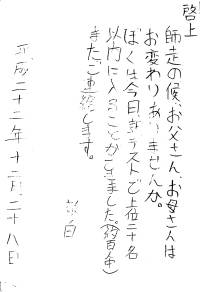 啓上
師走の候、お父さん、お母さんは
お変わりありませんか。
ぼくは今日、テストで上位二十名
以内に入ることができました。(百名中)
またご連絡します。
敬白
平成二十二年十二月二十八日